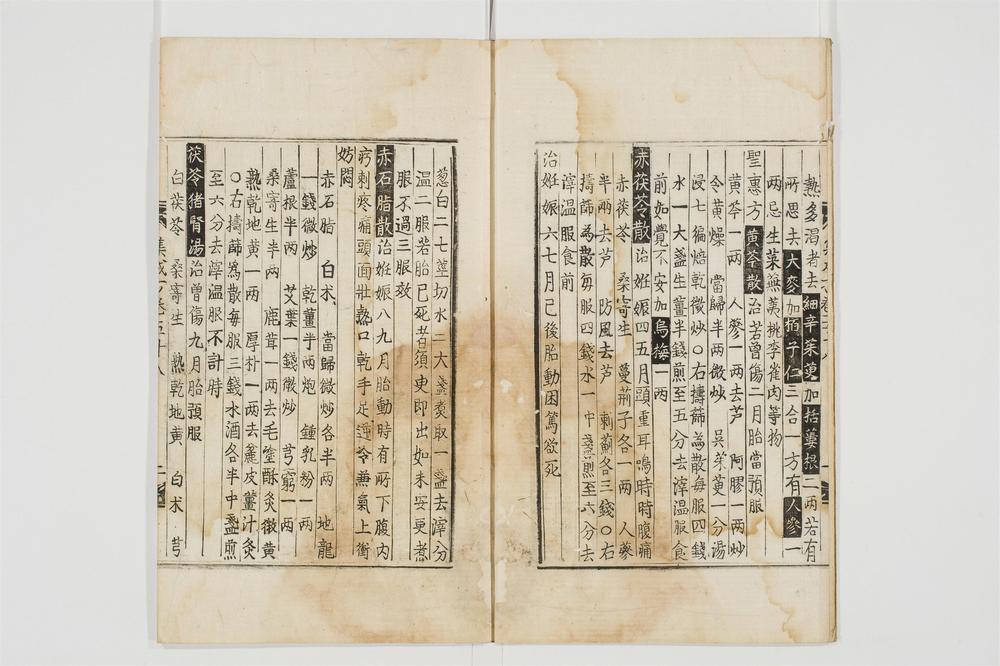 熱多渴者去細辛茱萸加括蔞根二兩若有
所思去大麥加栢子仁三合一方有人參一
兩忌生菜蕪荑桃李雀肉等物
聖惠方黃芩散治若曾傷二月胎當預服
黃芩一兩 人參一兩去芦 阿膠一兩炒
令黃燥 當歸半兩微炒 吳茱萸一分湯
浸七徧焙乾微炒○右擣篩為散每服四錢
水一大盞生薑半錢煎至五分去滓溫服食
前如覺不安加烏梅一兩
赤茯苓散治姙娠四五月頭重耳鳴時時腹痛
赤茯苓 桑寄生 蔓荊子各一兩 人參
半兩去芦 防風去芦 刺薊各三錢○右
擣篩為散每服四錢水一中盞煎至六分去
滓溫服食前
治姙娠六七月已後胎動困篤欲死
葱白二七莖切水二大盞煑取一盞去滓分
溫二服若胎已死者須臾即出如未安更煮
服不過三服效
赤石脂散治姙娠八九月胎動時有所下腹內
㽲刺疼痛頭面壯熱口乾手足逆冷無氣上衝
妨悶
赤石脂 白朮 當歸微炒各半兩 地龍
一錢微炒 乾薑半兩炮 鍾乳粉一兩
蘆根半兩 艾葉一錢微炒 芎藭一兩
桑寄生半兩 鹿茸一兩去毛塗酥灸微黃
熟乾地黃一兩 厚朴一兩去麁皮薑汁灸
○右擣篩為散每服三錢水酒各半中盞煎
至六分去滓溫服不計時
茯苓猪腎湯治曾傷九月胎預服
白茯苓 桑寄生 熟乾地黃 白朮 芎